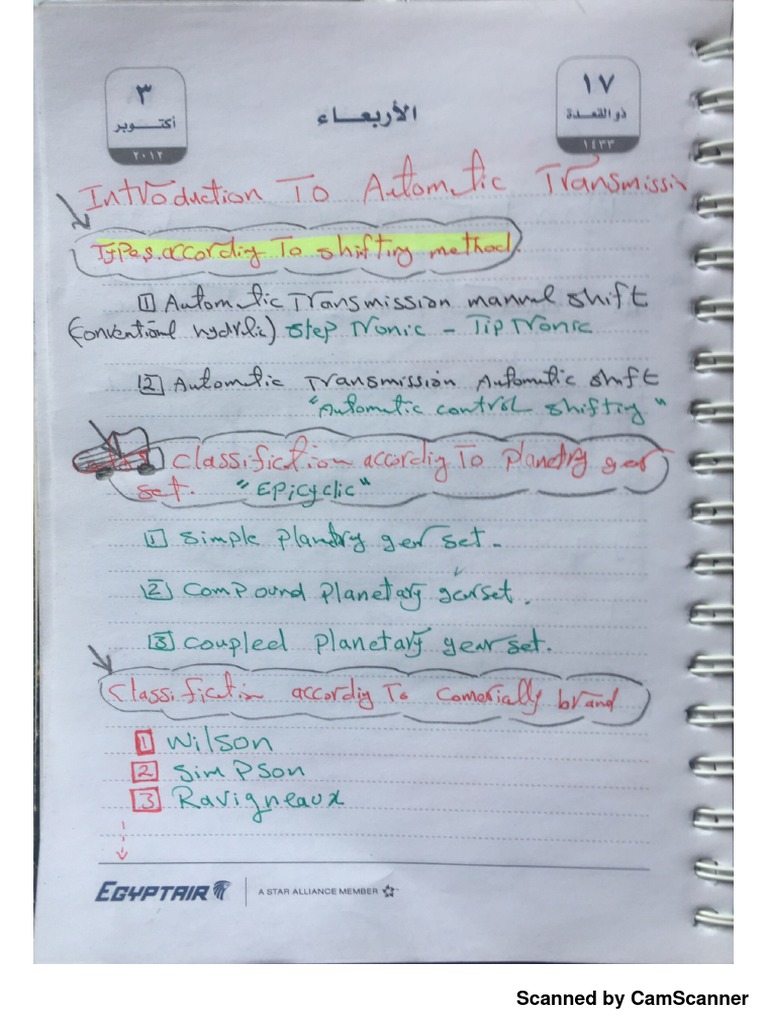 ٣
أكتوبر
٢٠١٢
الأربعاء
١٧
ذو القعدة
١٤٣٣
Introduction To Automatic Transmissin
Types according To shifting method.
1 Automatic Transmission manual shift
(conventional hydrlic) step tronic - Tip tronic
2 Automatic Transmission Automatic shift
"Automatic control shifting"
classification accordig To planetry ger
set. "Epicyclic"
1 simple plantry ger set.
2 compound planetary gearset.
3 coupleel planetary gear set.
classifictin accordig To comerially brand
1 wilson
2 simpson
3 Ravigneaux
EGYPTAIR
A STAR ALLIANCE MEMBER
Scanned by CamScanner